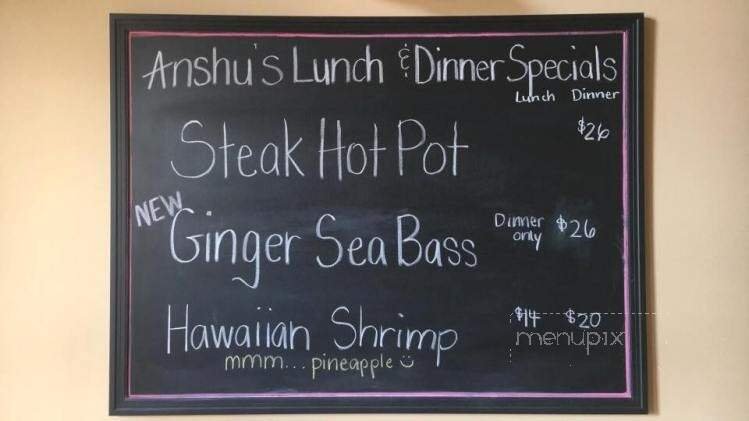 Anshu's Lunch & Dinner Specials
Lunch Dinner
Steak Hot Pot $26
NEW
Ginger Sea Bass Dinner only $26
Hawaiian Shrimp $14 $20
mmm... pineapple ☺
menupix